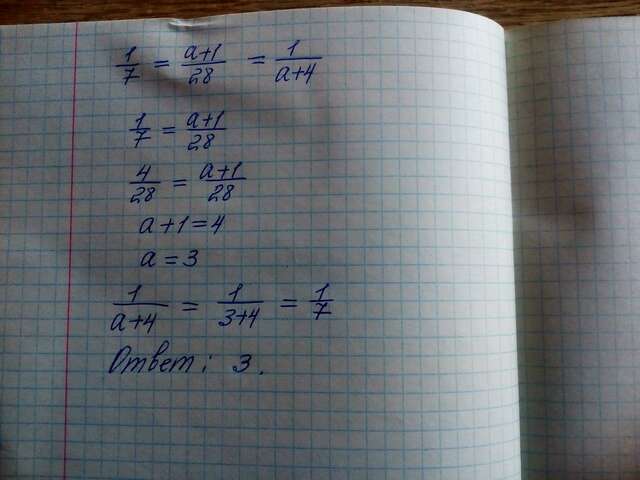 1/7 = a+1/28 = 1/a+4
1/7 = a+1/28
4/28 = a+1/28
a+1=4
a=3
1/a+4 = 1/3+4 = 1/7
Ответ: 3.